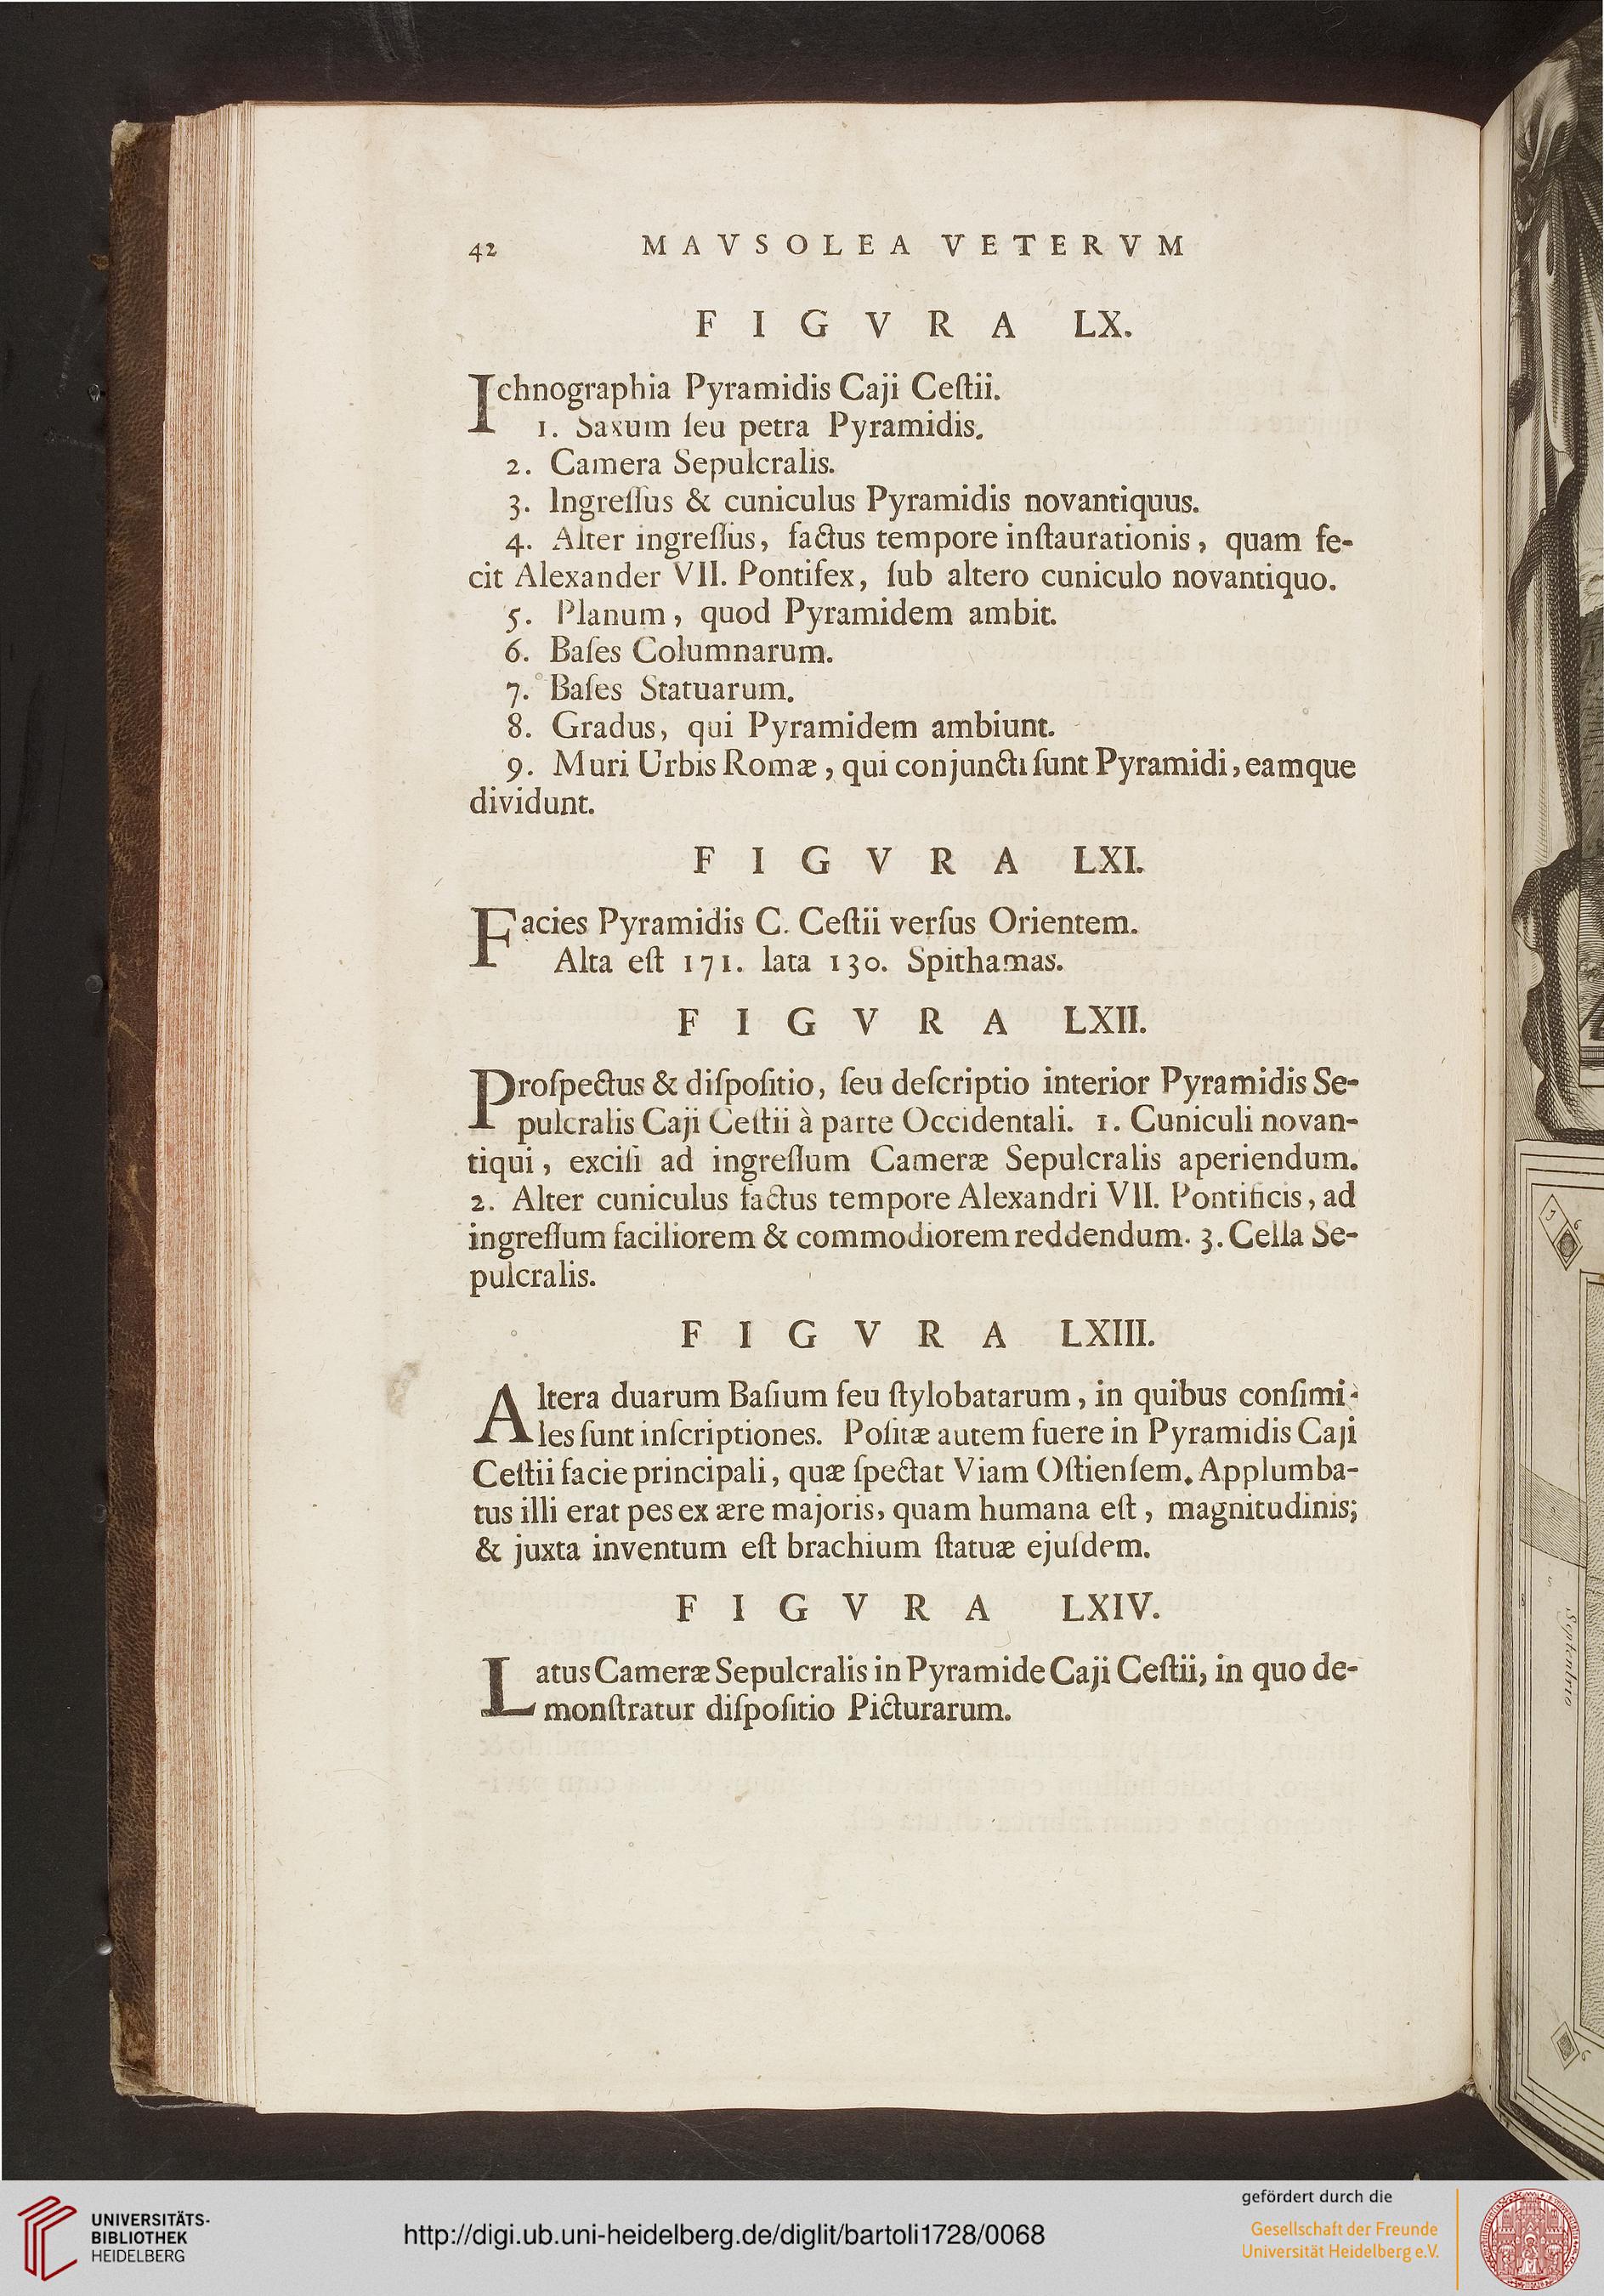 42 MAVSOLEA VETERVM
FIGVRA LX.
Ichnographia Pyramidis Caji Ceſtii.
1. Saxum ſeu petra Pyramidis.
2. Camera Sepulcralis.
3. Ingreſſus & cuniculus Pyramidis novantiquus.
4. Alter ingreſſus, factus tempore inſtaurationis, quam fe-
cit Alexander VII. Pontifex, ſub altero cuniculo novantiquo.
5. Planum, quod Pyramidem ambit.
6. Baſes Columnarum.
7. Baſes Statuarum.
8. Gradus, qui Pyramidem ambiunt.
9. Muri Urbis Romæ, qui conjuncti ſunt Pyramidi, eamque
dividunt.
FIGVRA LXI.
Facies Pyramidis C. Ceſtii verſus Orientem.
Alta eſt 171. lata 130. Spithamas.
FIGVRA LXII.
Proſpectus & diſpoſitio, ſeu deſcriptio interior Pyramidis Se-
pulcralis Caji Ceſtii à parte Occidentali. 1. Cuniculi novan-
tiqui, exciſi ad ingreſſum Cameræ Sepulcralis aperiendum.
2. Alter cuniculus factus tempore Alexandri VII. Pontificis, ad
ingreſſum faciliorem & commodiorem reddendum. 3. Cella Se-
pulcralis.
FIGVRA LXIII.
Altera duarum Baſium ſeu ſtylobatarum, in quibus conſimi-
les ſunt inſcriptiones. Poſitæ autem fuere in Pyramidis Caji
Ceſtii facie principali, quæ ſpectat Viam Oſtienſem. Applumba-
tus illi erat pes ex ære majoris, quam humana eſt, magnitudinis;
& juxta inventum eſt brachium ſtatuæ ejuſdem.
FIGVRA LXIV.
Latus Cameræ Sepulcralis in Pyramide Caji Ceſtii, in quo de-
monſtratur diſpoſitio Picturarum.
Septentrio
UNIVERSITÄTS-
BIBLIOTHEK
HEIDELBERG
http://digi.ub.uni-heidelberg.de/diglit/bartoli1728/0068
gefördert durch die
Gesellschaft der Freunde
Universität Heidelberg e.V.